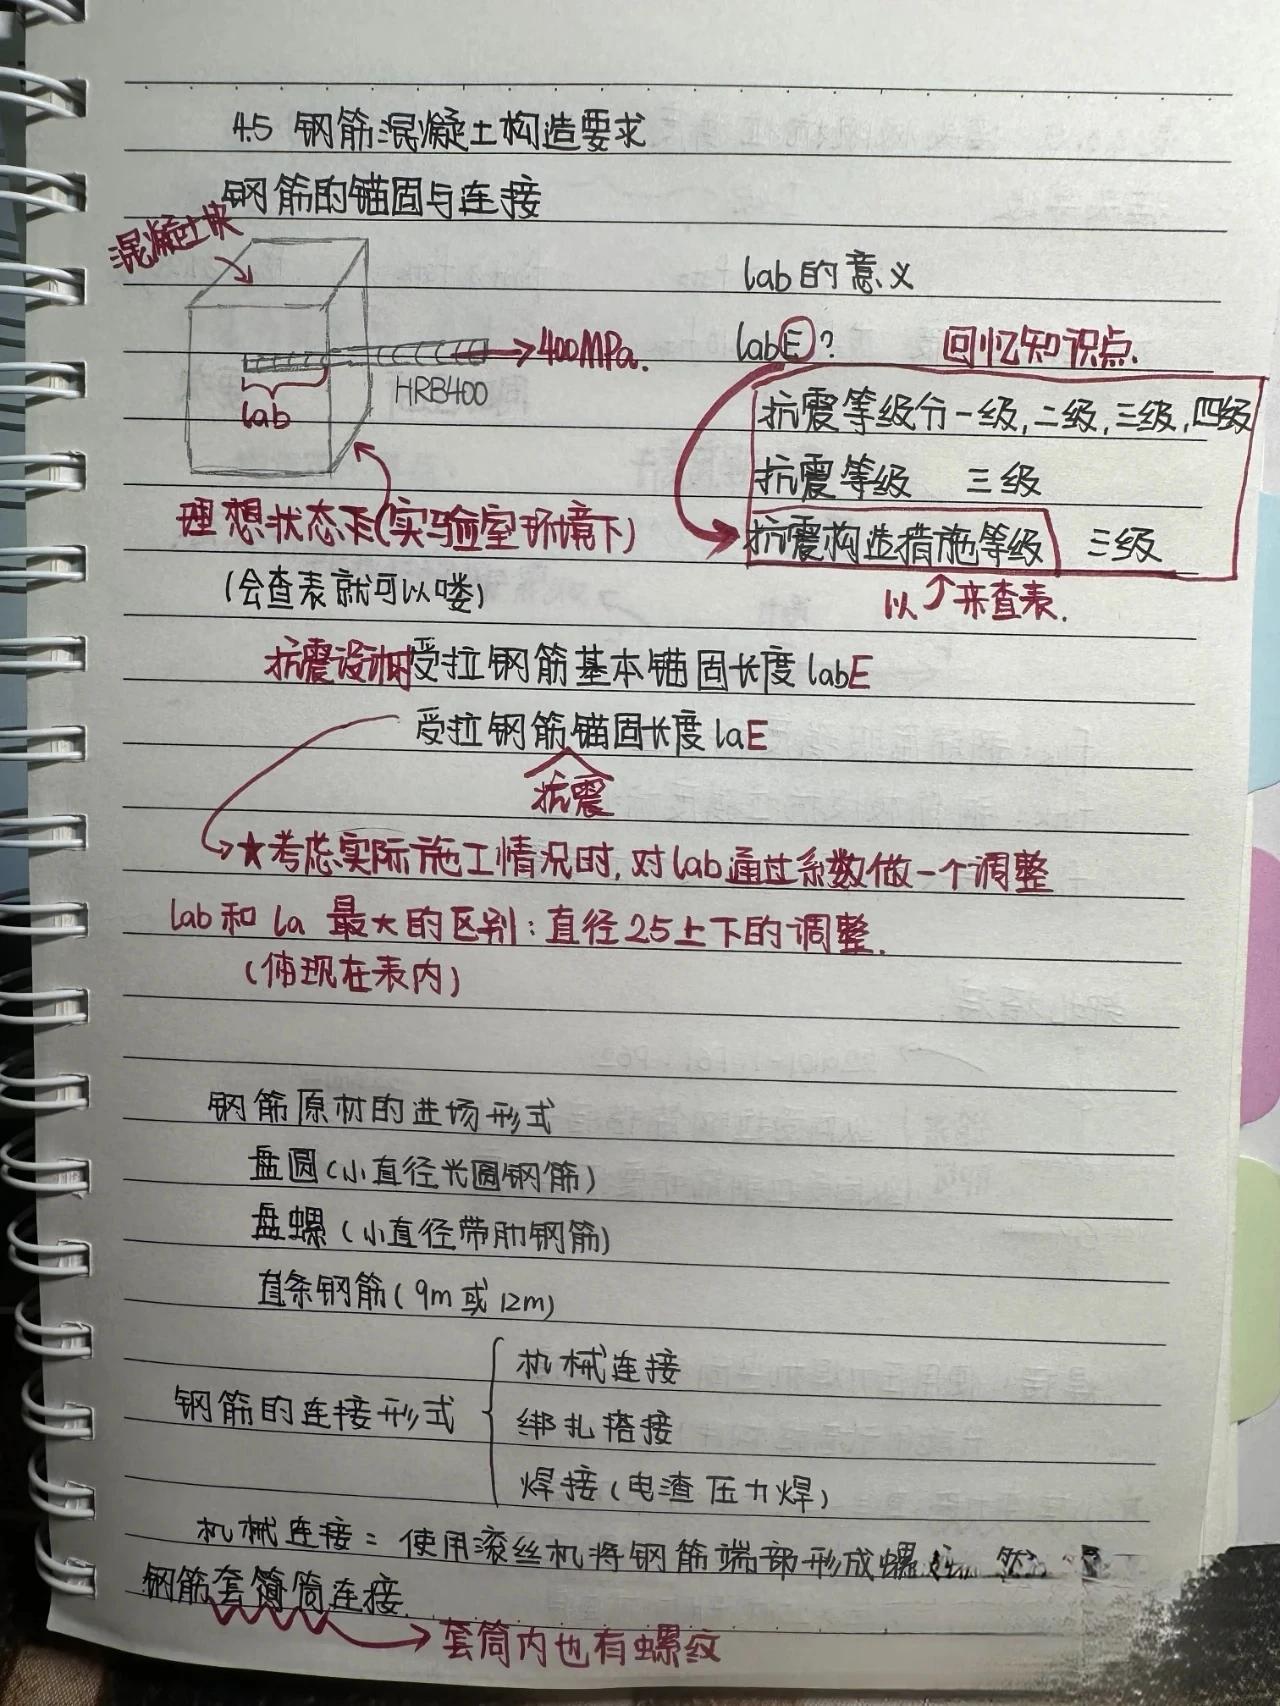 4.5 钢筋混凝土构造要求
钢筋的锚固与连接
混凝土块
lab的意义
labE?
回忆知识点.
400MPa.
HRB400
lab
抗震等级分一级,二级,三级,四级
抗震等级 三级
抗震构造措施等级 三级
以↑来查表.
理想状态下(实验室环境下)
(会查表就可以喽)
抗震设计时受拉钢筋基本锚固长度labE
受拉钢筋锚固长度laE
抗震
★考虑实际施工情况时,对lab通过系数做一个调整
lab和la 最大的区别:直径25上下的调整.
(体现在表内)
钢筋原材的进场形式
盘圆(小直径光圆钢筋)
盘螺(小直径带肋钢筋)
直条钢筋(9m或12m)
钢筋的连接形式
机械连接
绑扎搭接
焊接(电渣压力焊)
机械连接:使用滚丝机将钢筋端部形成螺
钢筋套筒连接.
套筒内也有螺纹